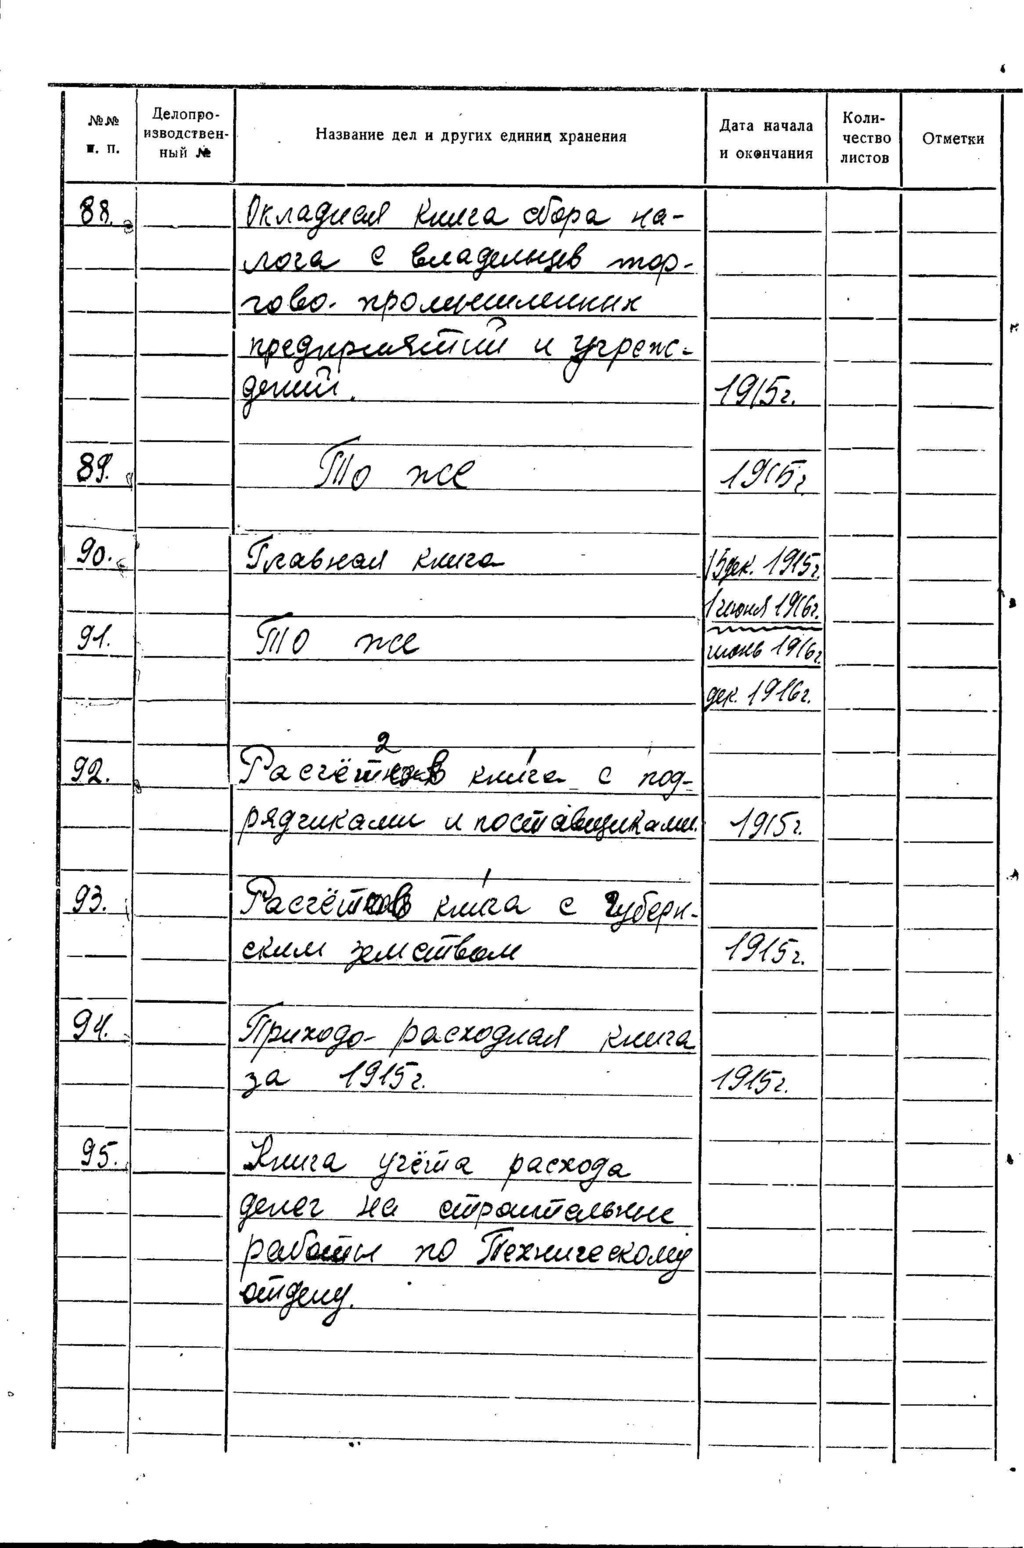 №№ п. п.
Делопро-
изводствен-
ный №
Название дел и других единиц хранения
Дата начала
и окончания
Коли-
чество
листов
Отметки
88.
Окладная книга сбора на-
лога с владельцев тор-
гово-промышленных
предприятий и учреж-
дений.
1915г.
89. То же 1915г.
90. Главная книга 15 дек. 1915г.
1 июня 1916г.
91. То же июнь 1916г.
дек. 1916г.
2
92. Расчётная книга с под-
рядчиками и поставщиками. 1915г.
93. Расчётная книга с Губерн-
ским земством 1915г.
94. Приходо-расходная книга
за 1915г. 1915г.
95. Книга учёта расхода
денег на строительные
работы по Техническому
отделу.